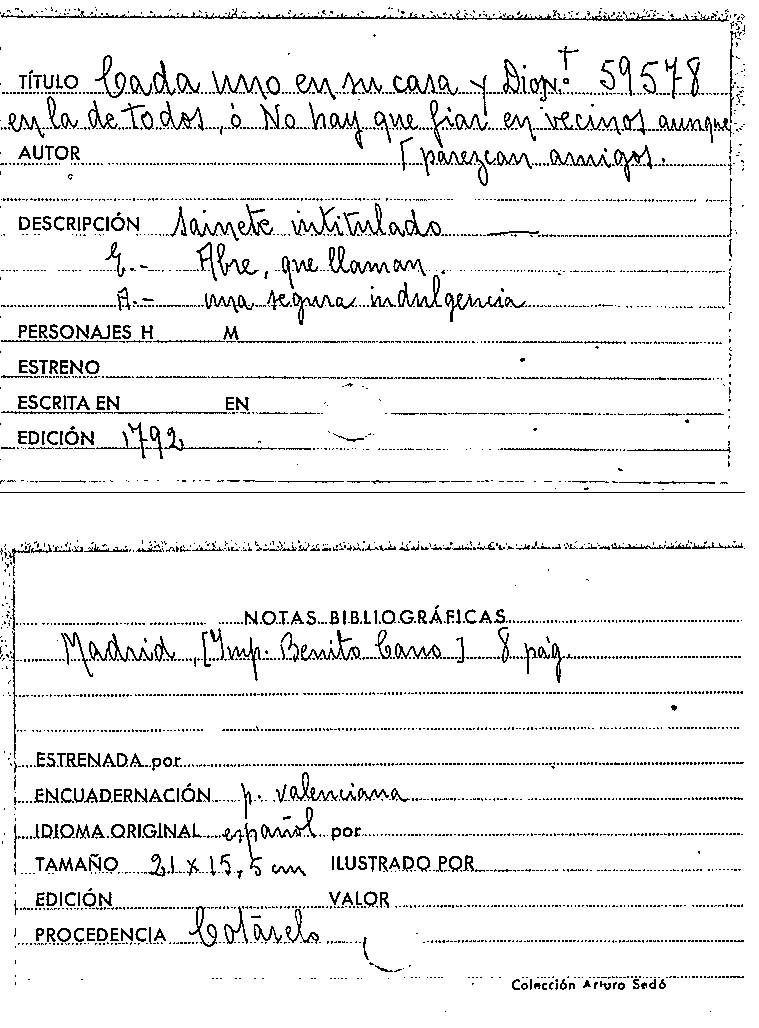 TÍTULO Cada uno en su casa y Dion.º † 59578
en la de todos, ó No hay que fiar en vecinos aunque
AUTOR [parezcan amigos.
DESCRIPCIÓN Sainete intitulado —
E.- Abre, que llaman.
A.- una segura indulgencia
PERSONAJES H M
ESTRENO
ESCRITA EN EN
EDICIÓN 1792
NOTAS BIBLIOGRÁFICAS
Madrid, [Imp. Benito Cano] 8 pág.
ESTRENADA por
ENCUADERNACIÓN p. valenciana
IDIOMA ORIGINAL español por
TAMAÑO 21 x 15,5 cm ILUSTRADO POR
EDICIÓN VALOR
PROCEDENCIA Cotarelo
Colección Arturo Sedó